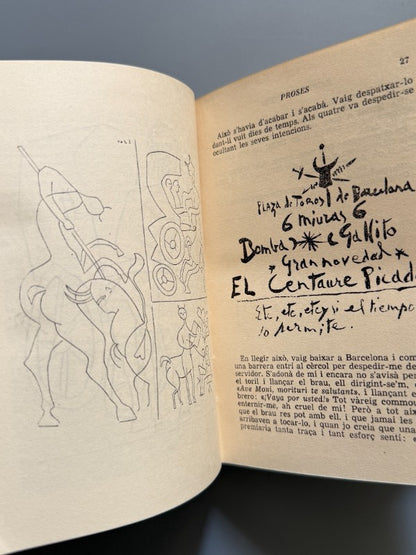 PROSES
27
Això s'havia d'acabar i s'acabà. Vaig despatxar-lo
dant-li vuit dies de temps. Als quatre va despedir-se
ocultant les seves intencions.
Plaza de Toros de Barcelona
6 miuras 6
Bomba e Gallito
Gran novedad
EL Centaure Picad
Etc, etc, etc y si el tiempo
lo permite.
En llegir això, vaig baixar a Barcelona i com
una barrera entrí al cèrcol per despedir-me de
servidor. S'adonà de mi i encara no s'avisà per
el toril i llançar el brau, ell dirigint-se'm,
«Ave Moni, morituri te salutant», i llançant
brero: «¡Vaya por usted!» Tot vàreig commou
enternir-me, ah cruel de mi! Però a tot això
que el brau res pot amb ell, i que jamai les
arribaven a tocar-lo, i quan jo creia que una
premiaria tanta traça i tant esforç sentí: «